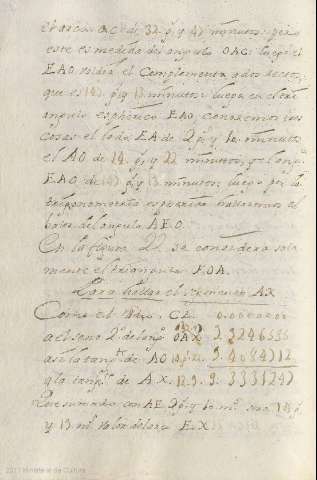 el arco OC de 32 g.s y 47 minutos; pero
este es medida del angulo OAC: luego el
EAO valdrá el Complemento a dos rectos,
que es 147 g.s y 13 minutos: luego en el tri
angulo espherico EAO, conocemos tres
cosas el lado EA de 2 g.s y 10 minutos
el AO de 14 g.s y 22 minutos, y el ang.o
EAO de 147 g.s y 13 minutos; luego por la
trigonometria espherica hallaremos el
valor del angulo AEO.
En la figura 22 se considera sola
mente el triangulo EOA.
Para hallar el segmento AX
Como el Radio CE 0.0000000
a el seno 2.o del ang.o OAX 9.9246535
assi la tang.te de AO 14 g. 22 9.4084712
a la tang.te de AX. 12.9. 9.3331247
Que sumado con AE 2 g.s y 10 m.s son 14 g.s
y 19 m.s valor del arco EX.
2011 Ministerio de Cultura